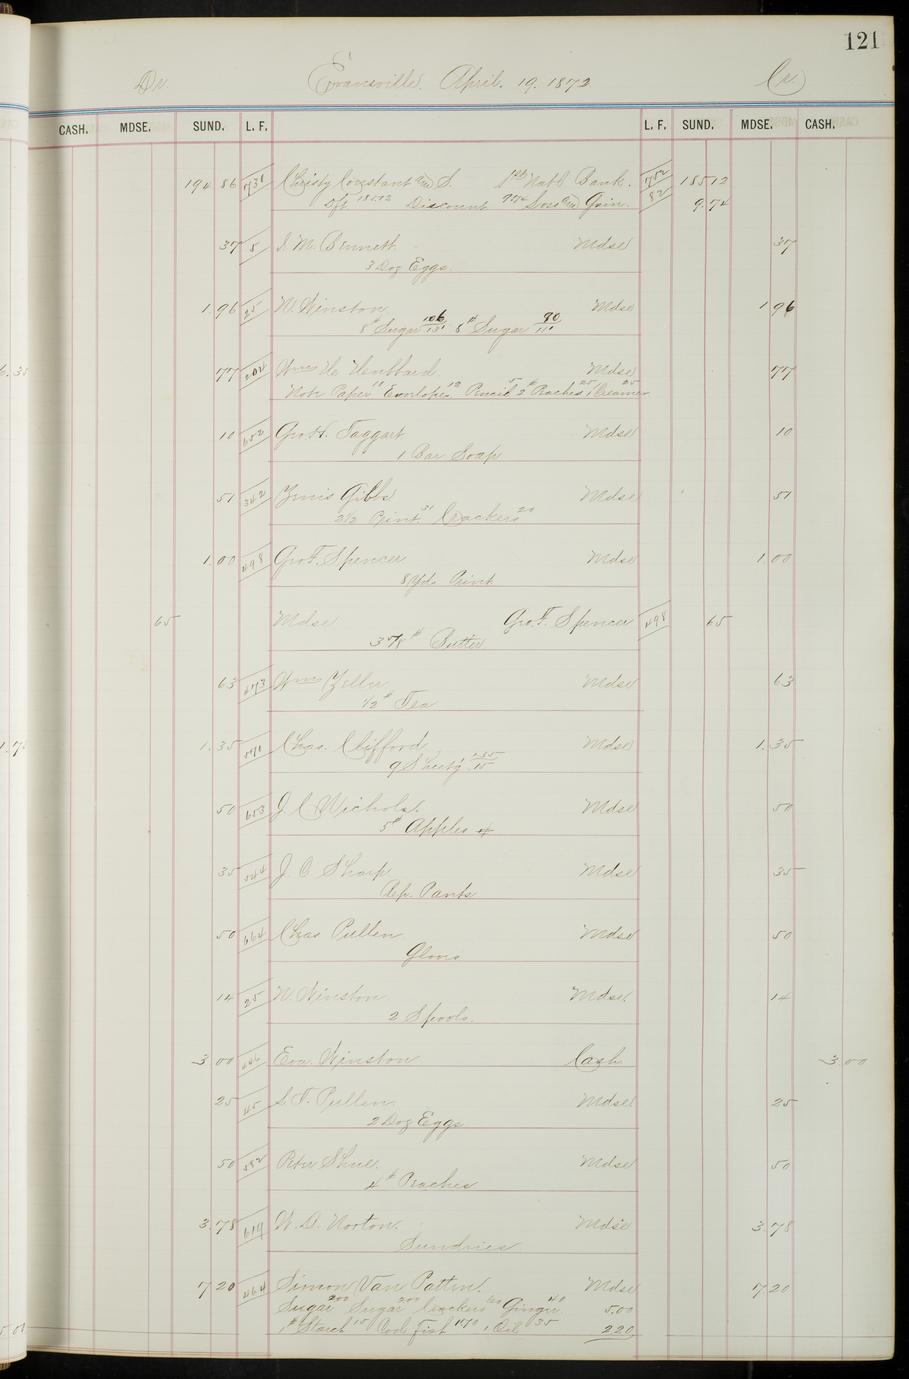 121
Dr. Evansville. April. 19. 1872 Cr
CASH. MDSE. SUND. L. F. L. F. SUND. MDSE. CASH.
194 86 731 Christy Constant and S. 1st Nat'l Bank. 752 185 12
Dft 185.12 Discount 9.74 Loss and Gain. 82 9.74
37 5 J. M. Bennett Mdse 37
3 Doz Eggs
1.96 25 W. Winston Mdse 1 96
8# Sugar 106/13 8# Sugar 90/11
77 202 Wm H. Mdse 77
Note Paper 11 Envelopes 12 Pencil 5 2# Peaches 25 1 Creamer 25
10 652 Geo H. Taggart Mdse 10
1 Bar Soap
51 342 Gibbs Mdse 51
2 1/2 Print 31 Crackers 20
1.00 498 Geo. F. Spencer Mdse 1.00
8 Yds Print
65 Mdse Geo. F. Spencer 498 65
# Butter
63 673 Wm Zeller Mdse 63
1/2# Tea
1.35 Chas. Clifford Mdse 1.35
9 135/15
50 653 J. C. Nichols. Mdse 50
5# Apples
35 544 J. C. Sharp Mdse 35
Rep. Pants
50 664 Chas Pullen Mdse 50
Gloves
14 25 W. Winston Mdse. 14
2 Spools.
3 00 Eva. Winston Cash 3.00
25 45 S. T. Pullen. Mdse 25
2 Doz Eggs
50 582 Peter Shue. Mdse 50
4# Peaches
3.78 619 W. D. Norton. Mdse 3.78
Sundries
7 20 464 Simon Van Patten. Mdse 7.20
Sugar 200 Sugar 200 Crackers Ginger 40 5.00
1# Starch 15 Cod Fish 170 1 Oil 35 2 20